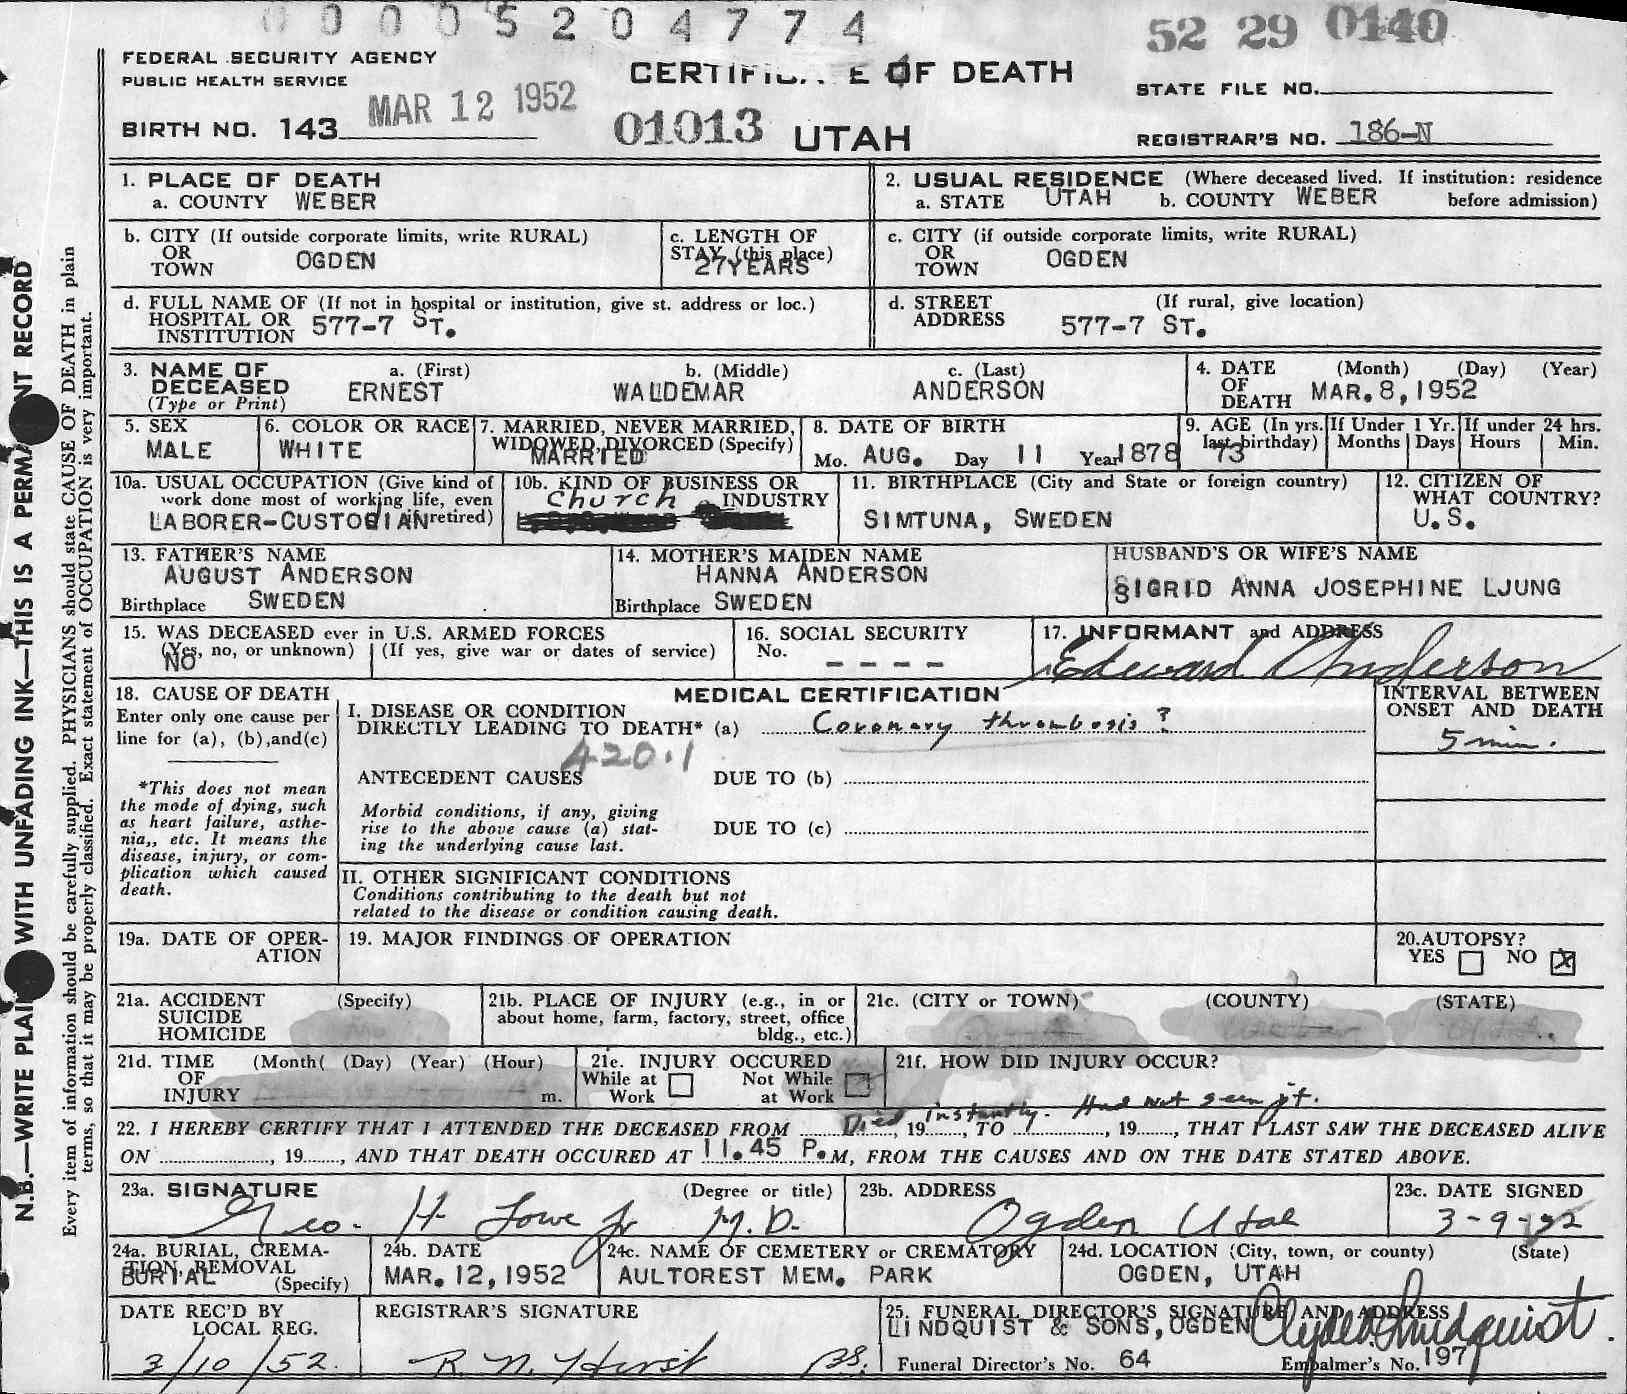 0 0 0 0 5 2 0 4 7 7 4
52 29 0140
FEDERAL SECURITY AGENCY
PUBLIC HEALTH SERVICE
CERTIFI E OF DEATH
STATE FILE NO.
MAR 12 1952
BIRTH NO. 143
01013 UTAH
REGISTRAR'S NO. 186-N
1. PLACE OF DEATH
a. COUNTY WEBER
2. USUAL RESIDENCE (Where deceased lived. If institution: residence before admission)
a. STATE UTAH b. COUNTY WEBER
b. CITY (If outside corporate limits, write RURAL)
OR
TOWN OGDEN
c. LENGTH OF
STAY (this place)
27YEARS
c. CITY (if outside corporate limits, write RURAL)
OR
TOWN OGDEN
d. FULL NAME OF (If not in hospital or institution, give st. address or loc.)
HOSPITAL OR
INSTITUTION 577-7 ST.
d. STREET (If rural, give location)
ADDRESS 577-7 ST.
3. NAME OF a. (First) b. (Middle) c. (Last)
DECEASED ERNEST WALDEMAR ANDERSON
(Type or Print)
4. DATE (Month) (Day) (Year)
OF
DEATH MAR.8,1952
5. SEX
MALE
6. COLOR OR RACE
WHITE
7. MARRIED, NEVER MARRIED,
WIDOWED, DIVORCED (Specify)
MARRIED
8. DATE OF BIRTH
Mo. AUG. Day 11 Year 1878
9. AGE (In yrs. last birthday)
73
If Under 1 Yr.
Months Days
If under 24 hrs.
Hours Min.
10a. USUAL OCCUPATION (Give kind of
work done most of working life, even
LABORER-CUSTODIAN if retired)
10b. KIND OF BUSINESS OR
Church INDUSTRY
11. BIRTHPLACE (City and State or foreign country)
SIMTUNA, SWEDEN
12. CITIZEN OF
WHAT COUNTRY?
U.S.
13. FATHER'S NAME
AUGUST ANDERSON
Birthplace SWEDEN
14. MOTHER'S MAIDEN NAME
HANNA ANDERSON
Birthplace SWEDEN
HUSBAND'S OR WIFE'S NAME
SIGRID ANNA JOSEPHINE LJUNG
15. WAS DECEASED ever in U.S. ARMED FORCES
(Yes, no, or unknown) (If yes, give war or dates of service)
NO
16. SOCIAL SECURITY
No. - - - -
17. INFORMANT and ADDRESS
Edward Anderson
18. CAUSE OF DEATH
Enter only one cause per
line for (a), (b),and(c)
*This does not mean
the mode of dying, such
as heart failure, asthe-
nia,, etc. It means the
disease, injury, or com-
plication which caused
death.
MEDICAL CERTIFICATION
I. DISEASE OR CONDITION
DIRECTLY LEADING TO DEATH* (a) Coronary thrombosis?
420.1
ANTECEDENT CAUSES DUE TO (b)
Morbid conditions, if any, giving
rise to the above cause (a) stat-
ing the underlying cause last.
DUE TO (c)
II. OTHER SIGNIFICANT CONDITIONS
Conditions contributing to the death but not
related to the disease or condition causing death.
INTERVAL BETWEEN
ONSET AND DEATH
5 min.
19a. DATE OF OPER-
ATION
19. MAJOR FINDINGS OF OPERATION
20.AUTOPSY?
YES NO X
21a. ACCIDENT (Specify)
SUICIDE
HOMICIDE
21b. PLACE OF INJURY (e.g., in or
about home, farm, factory, street, office
bldg., etc.)
21c. (CITY or TOWN) (COUNTY) (STATE)
21d. TIME (Month( (Day) (Year) (Hour)
OF
INJURY m.
21e. INJURY OCCURED
While at Work Not While at Work
21f. HOW DID INJURY OCCUR?
Died instantly. Had not seen pt.
22. I HEREBY CERTIFY THAT I ATTENDED THE DECEASED FROM , 19 , TO , 19 , THAT I LAST SAW THE DECEASED ALIVE
ON , 19 , AND THAT DEATH OCCURED AT 11.45 P.M, FROM THE CAUSES AND ON THE DATE STATED ABOVE.
23a. SIGNATURE (Degree or title)
Geo. H Lowe Jr M.D.
23b. ADDRESS
Ogden Utah
23c. DATE SIGNED
3-9-52
24a. BURIAL, CREMA-
TION, REMOVAL
BURIAL (Specify)
24b. DATE
MAR. 12, 1952
24c. NAME OF CEMETERY or CREMATORY
AULTOREST MEM. PARK
24d. LOCATION (City, town, or county) (State)
OGDEN, UTAH
DATE REC'D BY
LOCAL REG.
3/10/52.
REGISTRAR'S SIGNATURE
R. N. Hirst
25. FUNERAL DIRECTOR'S SIGNATURE AND ADDRESS
LINDQUIST & SONS, OGDEN Clyde Lindquist.
Funeral Director's No. 64 Embalmer's No. 197
N.B.—WRITE PLAI WITH UNFADING INK—THIS IS A PERMA NT RECORD
Every item of information should be carefully supplied. PHYSICIANS should state CAUSE OF DEATH in plain
terms, so that it may be properly classified. Exact statement of OCCUPATION is very important.